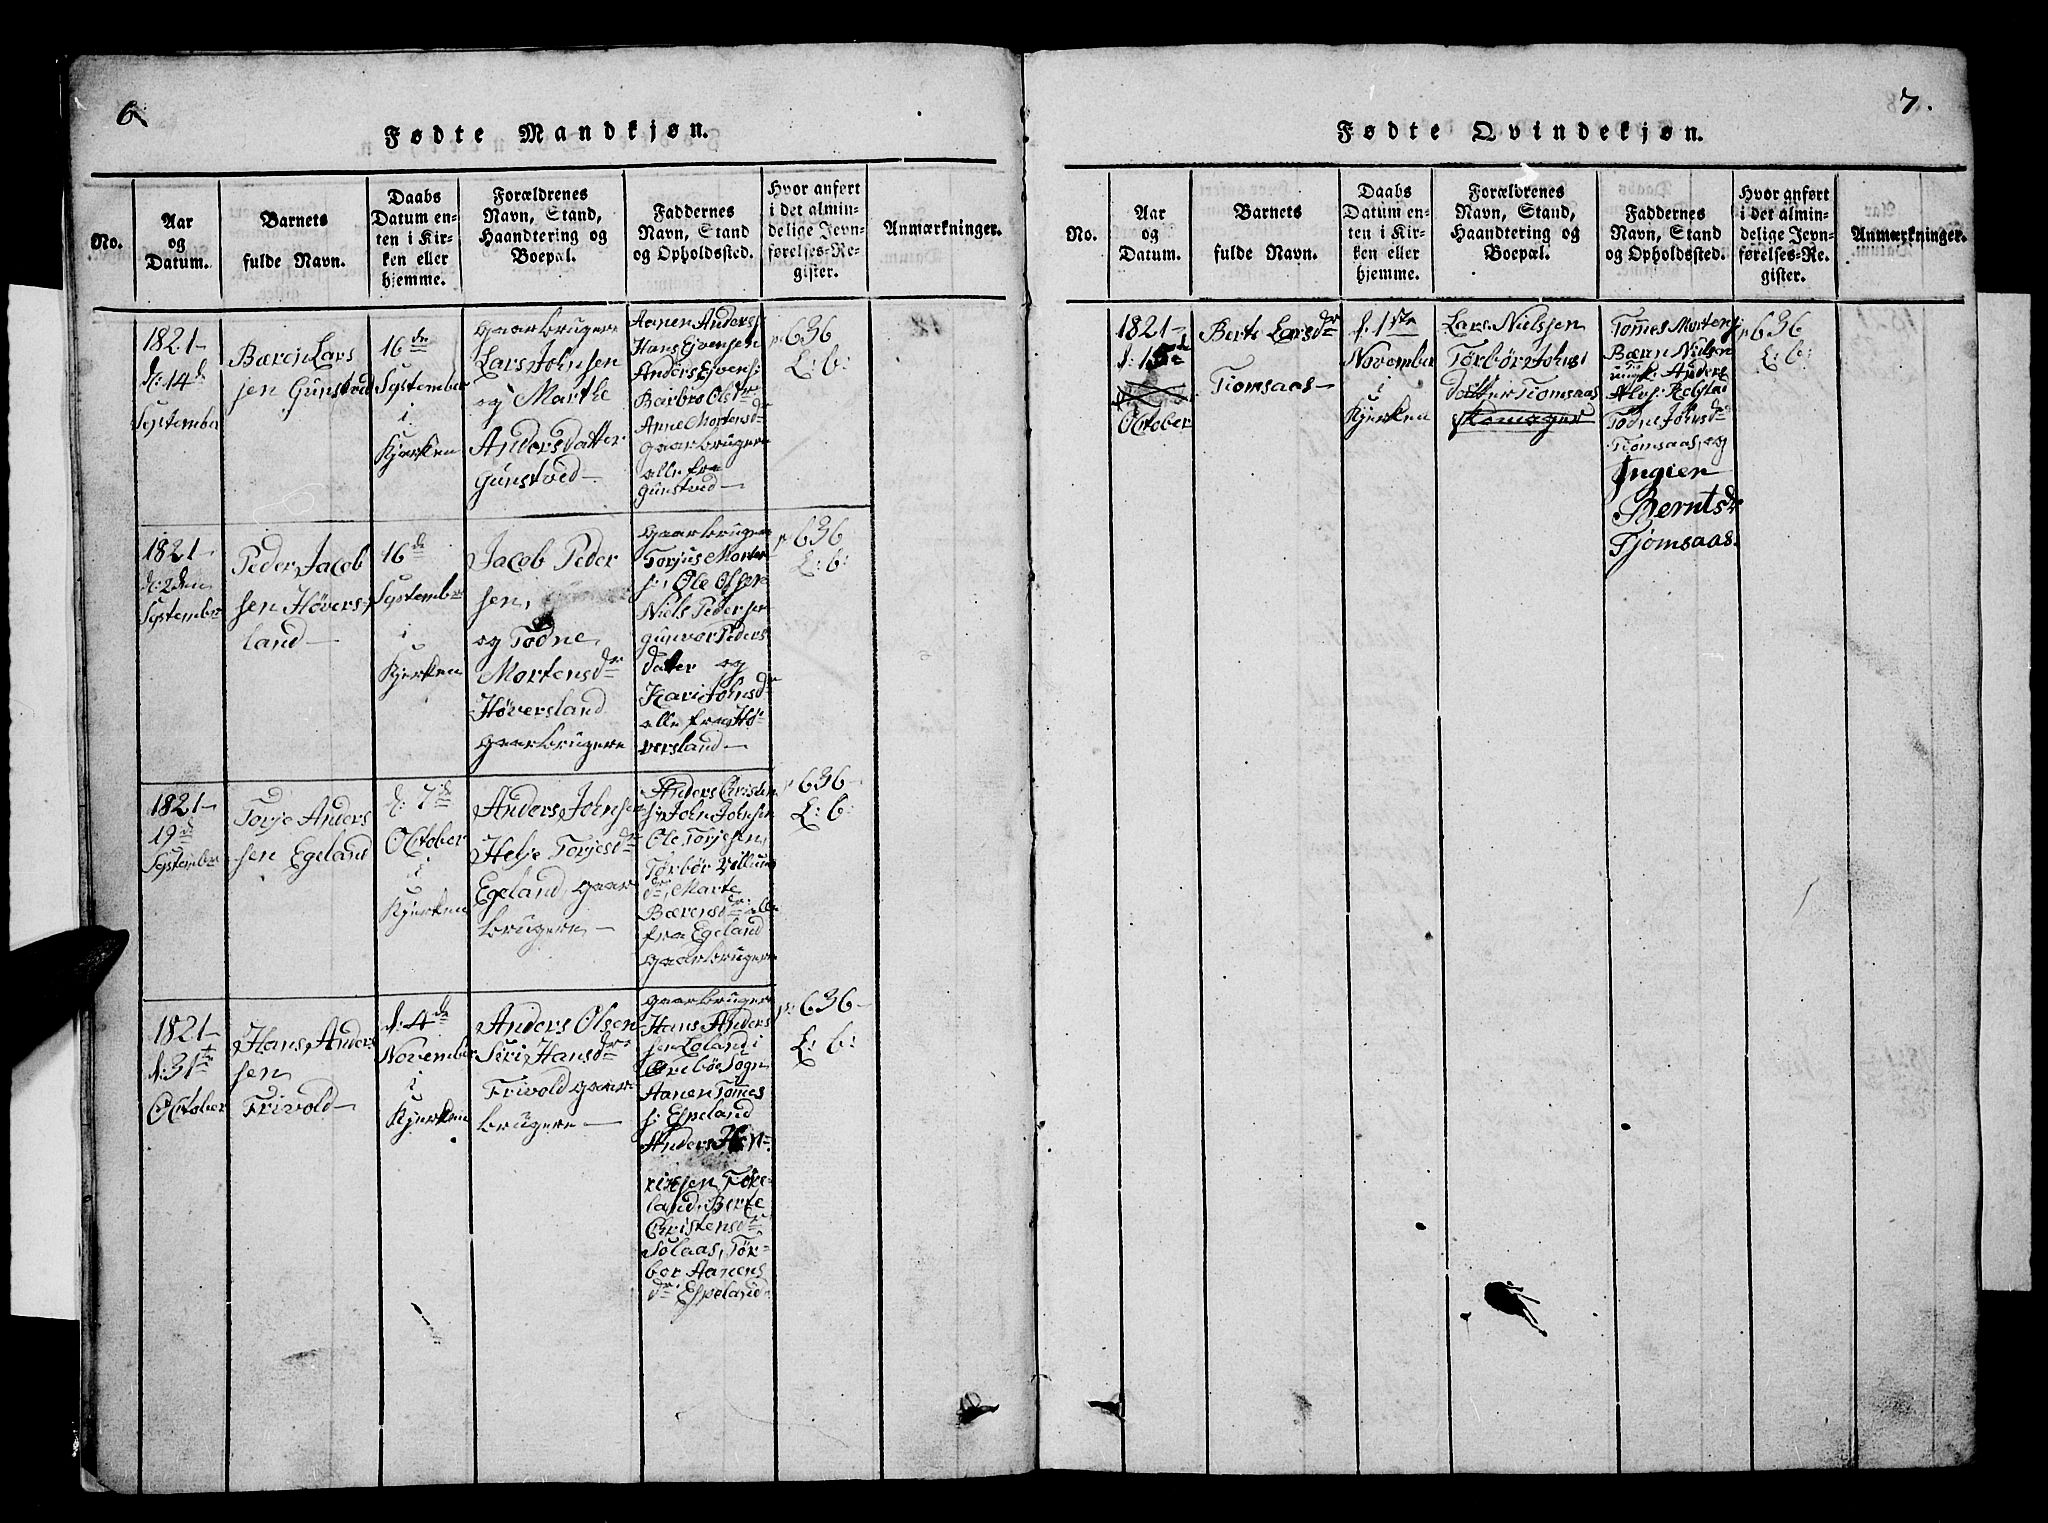 6
Fødte Mandkjøn.
No.
Aar
og
Datum.
Barnets
fulde Navn.
Daabs
Datum en-
ten i Kir-
ken eller
hjemme.
Forældrenes
Navn, Stand,
Haandtering og
Boepæl.
Faddernes
Navn, Stand
og Opholdssted.
Hvor anført
i det almin-
delige Jevn-
førelses-Re-
gister.
Anmærkninger.
1821-
d: 14 d
September
Bærej Lars
sen Gunstved
16 de
September
i
Kjerken
gaarbrugere
Lars Johnsen
og Marthe
Andersdatter
Gunstved-
Aanen Anders s:
Hans Ejvensen
Anders Ejvens:
Barbro Ols dr
Anne Mortensd
gaarbrugere
alle fra
Gunstved-
p: 636
L: b:
1821-
d: 2den
September
Peder Jacob
sen Høvers-
land-
16 de
September
i
Kjerken
Jacob Peder
sen,
og Todne
Mortensdr
Høversland
gaarbrugere
gaarbrugere
Torjus Morten
s:, Ole Olsen
Niels Pedersen
gunvor Peders
dater og
Kari Johnsd
alle fra Hø
versland-
p: 636
L: b:
1821-
19 d
September
Torje Anders
sen Egeland
d: 7 de
October
i
Kjerken
Anders Johnsen
Helje Torjesdr
Egeland, gaar
brugere-
Anders Christen
s: John Johnsen
Ole Torjesen,
Tørbør Villums
dr, Marte
Bærensdr alle
fra Egeland
gaarbrugere
p: 636-
L: b:
1821-
d: 31te
October
Hans Anders
sen
Frivold-
d: 4 de
November
i
Kjerken
Anders Olsen
Siri Hansdr
Frivold gaar
brugere-
gaarbrugere
Hans Anders
sen Eoland i
Orebøe Sogn
Aanen Tommes
s: Espeland
Anders Hen-
rixsenFøre-
land, Berte
Christensdr
Solaas, Tør-
bor Aanens
dr: Espeland
p: 636-
L: b:
7.
Fødte Qvindekjøn.
No.
Aar
og
Datum.
Barnets
fulde Navn.
Daabs
Datum en-
ten i Kir-
ken eller
hjemme.
Forældrenes
Navn, Stand,
Haandtering og
Boepæl.
Faddernes
Navn, Stand
og Opholdssted.
Hvor anført
i det almin-
delige Jevn-
førelses-Re-
gister.
Anmærkninger.
1821-
d: 15 d
October
Berte Larsdr
Tiomsaas-
d. 1ste
November
i
Kjerken
Lars Nielssen
Tørbør Johns
datter Tiomsaas
Tommes Mortens
Bæren Nielsen
ungk. Anders
Todne Johnsd
Tiomsaas, og
Ingier
Berntsdr
Tjomsaas.
p: 636
L: b: